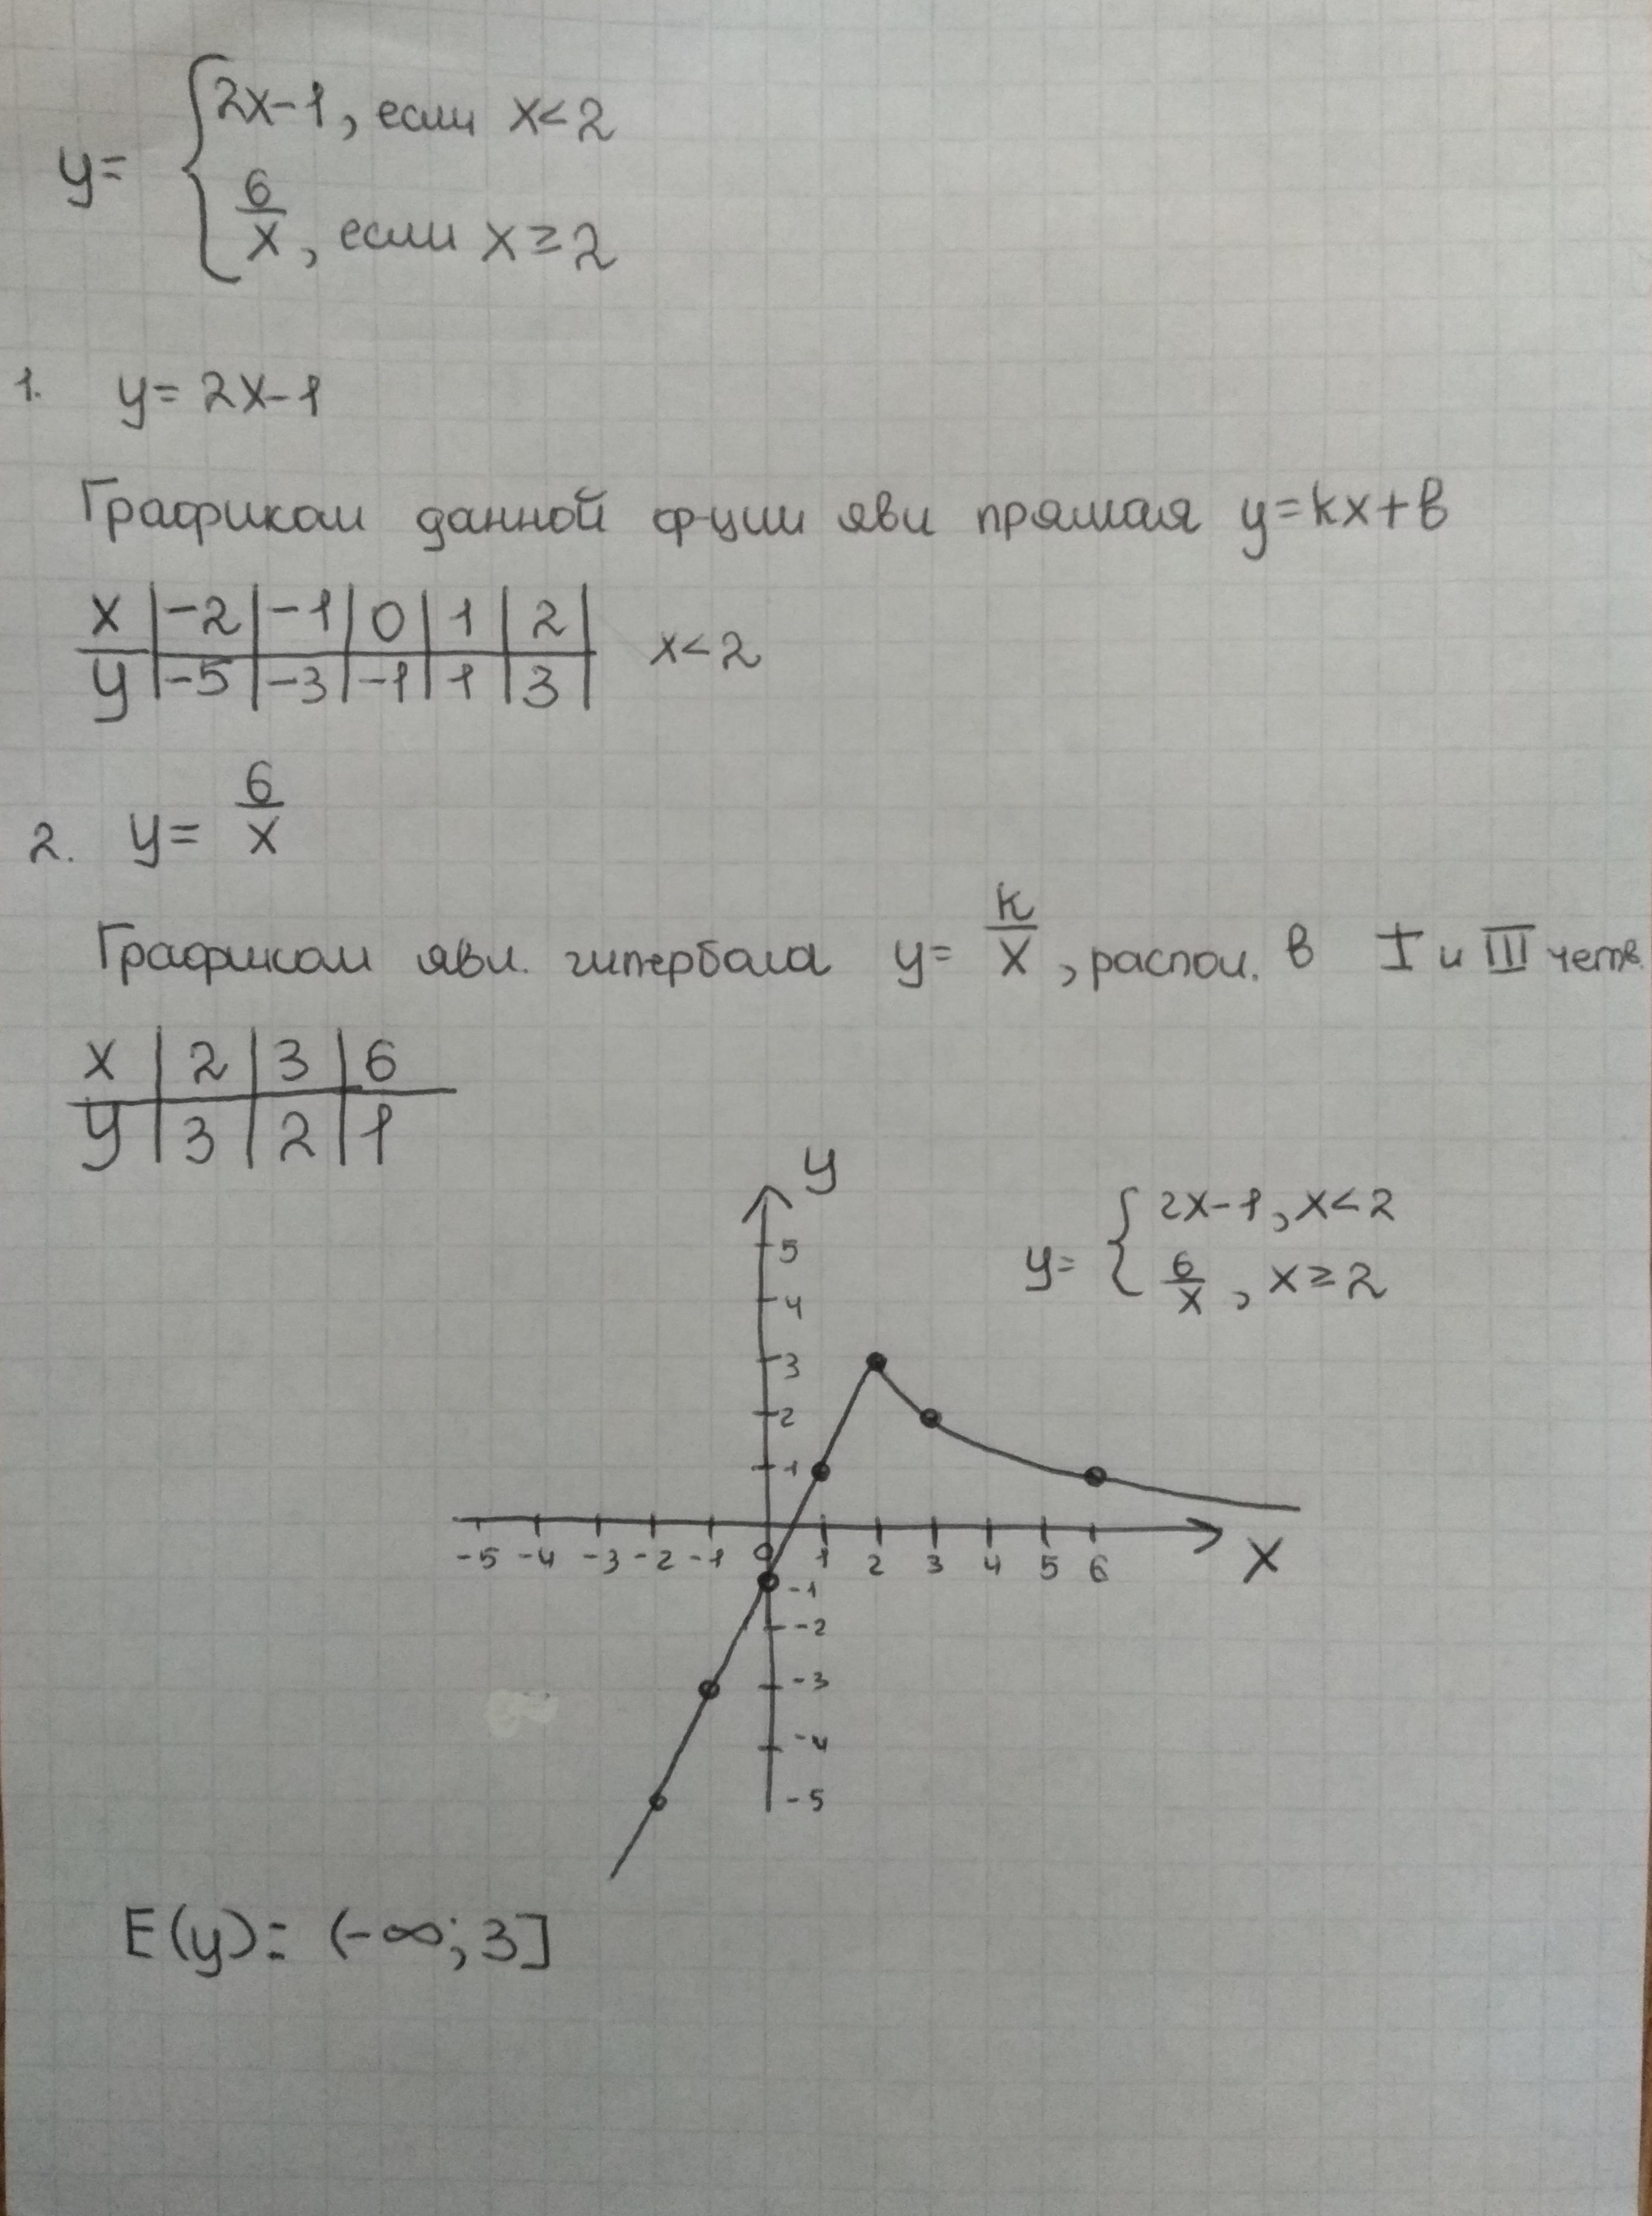 y= { 2x-1, если x<2
6/x, если x≥2
1. y= 2x-1
Графиком данной ф-ции явл прямая y=kx+b
x | -2 | -1 | 0 | 1 | 2 | x<2
y | -5 | -3 | -1 | 1 | 3 |
2. y= 6/x
Графиком явл. гипербола y= k/x, распол. в I и III четв.
x | 2 | 3 | 6
y | 3 | 2 | 1
y
y= { 2x-1, x<2
6/x, x≥2
5
4
3
2
1
-5 -4 -3 -2 -1 0 1 2 3 4 5 6 X
-1
-2
-3
-4
-5
E(y)= (-∞; 3]